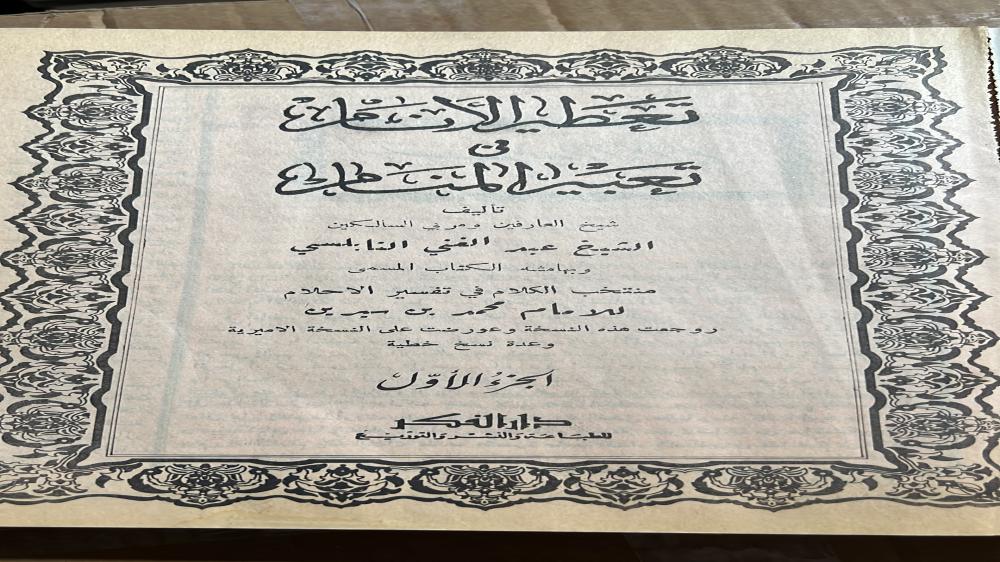 تعطير الأنام
في
تعبير المنام
تأليف
شيخ العارفين ومربي السالكين
الشيخ عبد الغني النابلسي
وبهامشه الكتاب المسمى
منتخب الكلام في تفسير الاحلام
للامام محمد بن سيرين
روجعت هذه النسخة وعورضت على النسخة الاميرية
وعدة نسخ خطية
الجزء الأول
دار الفكر
للطباعة والنشر والتوزيع